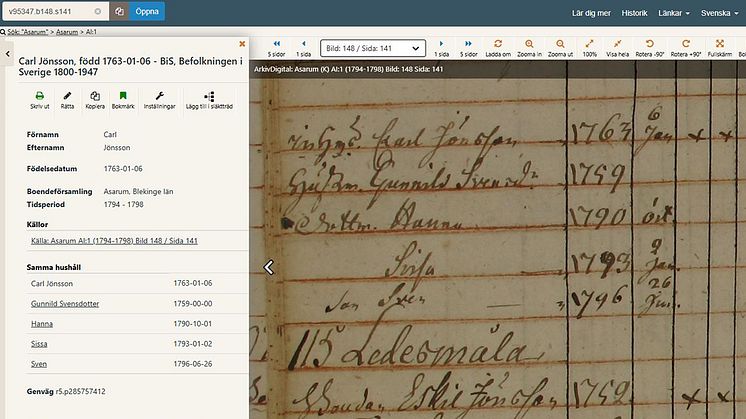 v95347.b148.s141 Öppna Lär dig mer Historik Länkar Svenska
Sök: "Asarum" > Asarum > AI:1
Carl Jönsson, född 1763-01-06 - BiS, Befolkningen i
Sverige 1800-1947
Skriv ut Rätta Kopiera Bokmärk Inställningar Lägg till i släktträd
Förnamn Carl
Efternamn Jönsson
Födelsedatum 1763-01-06
Boendeförsamling Asarum, Blekinge län
Tidsperiod 1794 - 1798
Källor
Källa: Asarum AI:1 (1794-1798) Bild 148 / Sida 141
Samma hushåll
Carl Jönsson 1763-01-06
Gunnild Svensdotter 1759-00-00
Hanna 1790-10-01
Sissa 1793-01-02
Sven 1796-06-26
Genväg r5.p285757412
5 sidor 1 sida Bild: 148 / Sida: 141 1 sida 5 sidor Ladda om Zooma in Zooma ut 100% Visa hela Rotera -90° Rotera +90° Fullskärm
ArkivDigital: Asarum (K) AI:1 (1794-1798) Bild: 148 Sida: 141
Carl Jönsson 1763 6 Jan x x
Gunnild Svensd: 1759
Hanna 1790
Sissa 1793 2 Jan.
Son Sven 1796 26
115 Ledesmåla
Eskil Jönsson 1752. x x